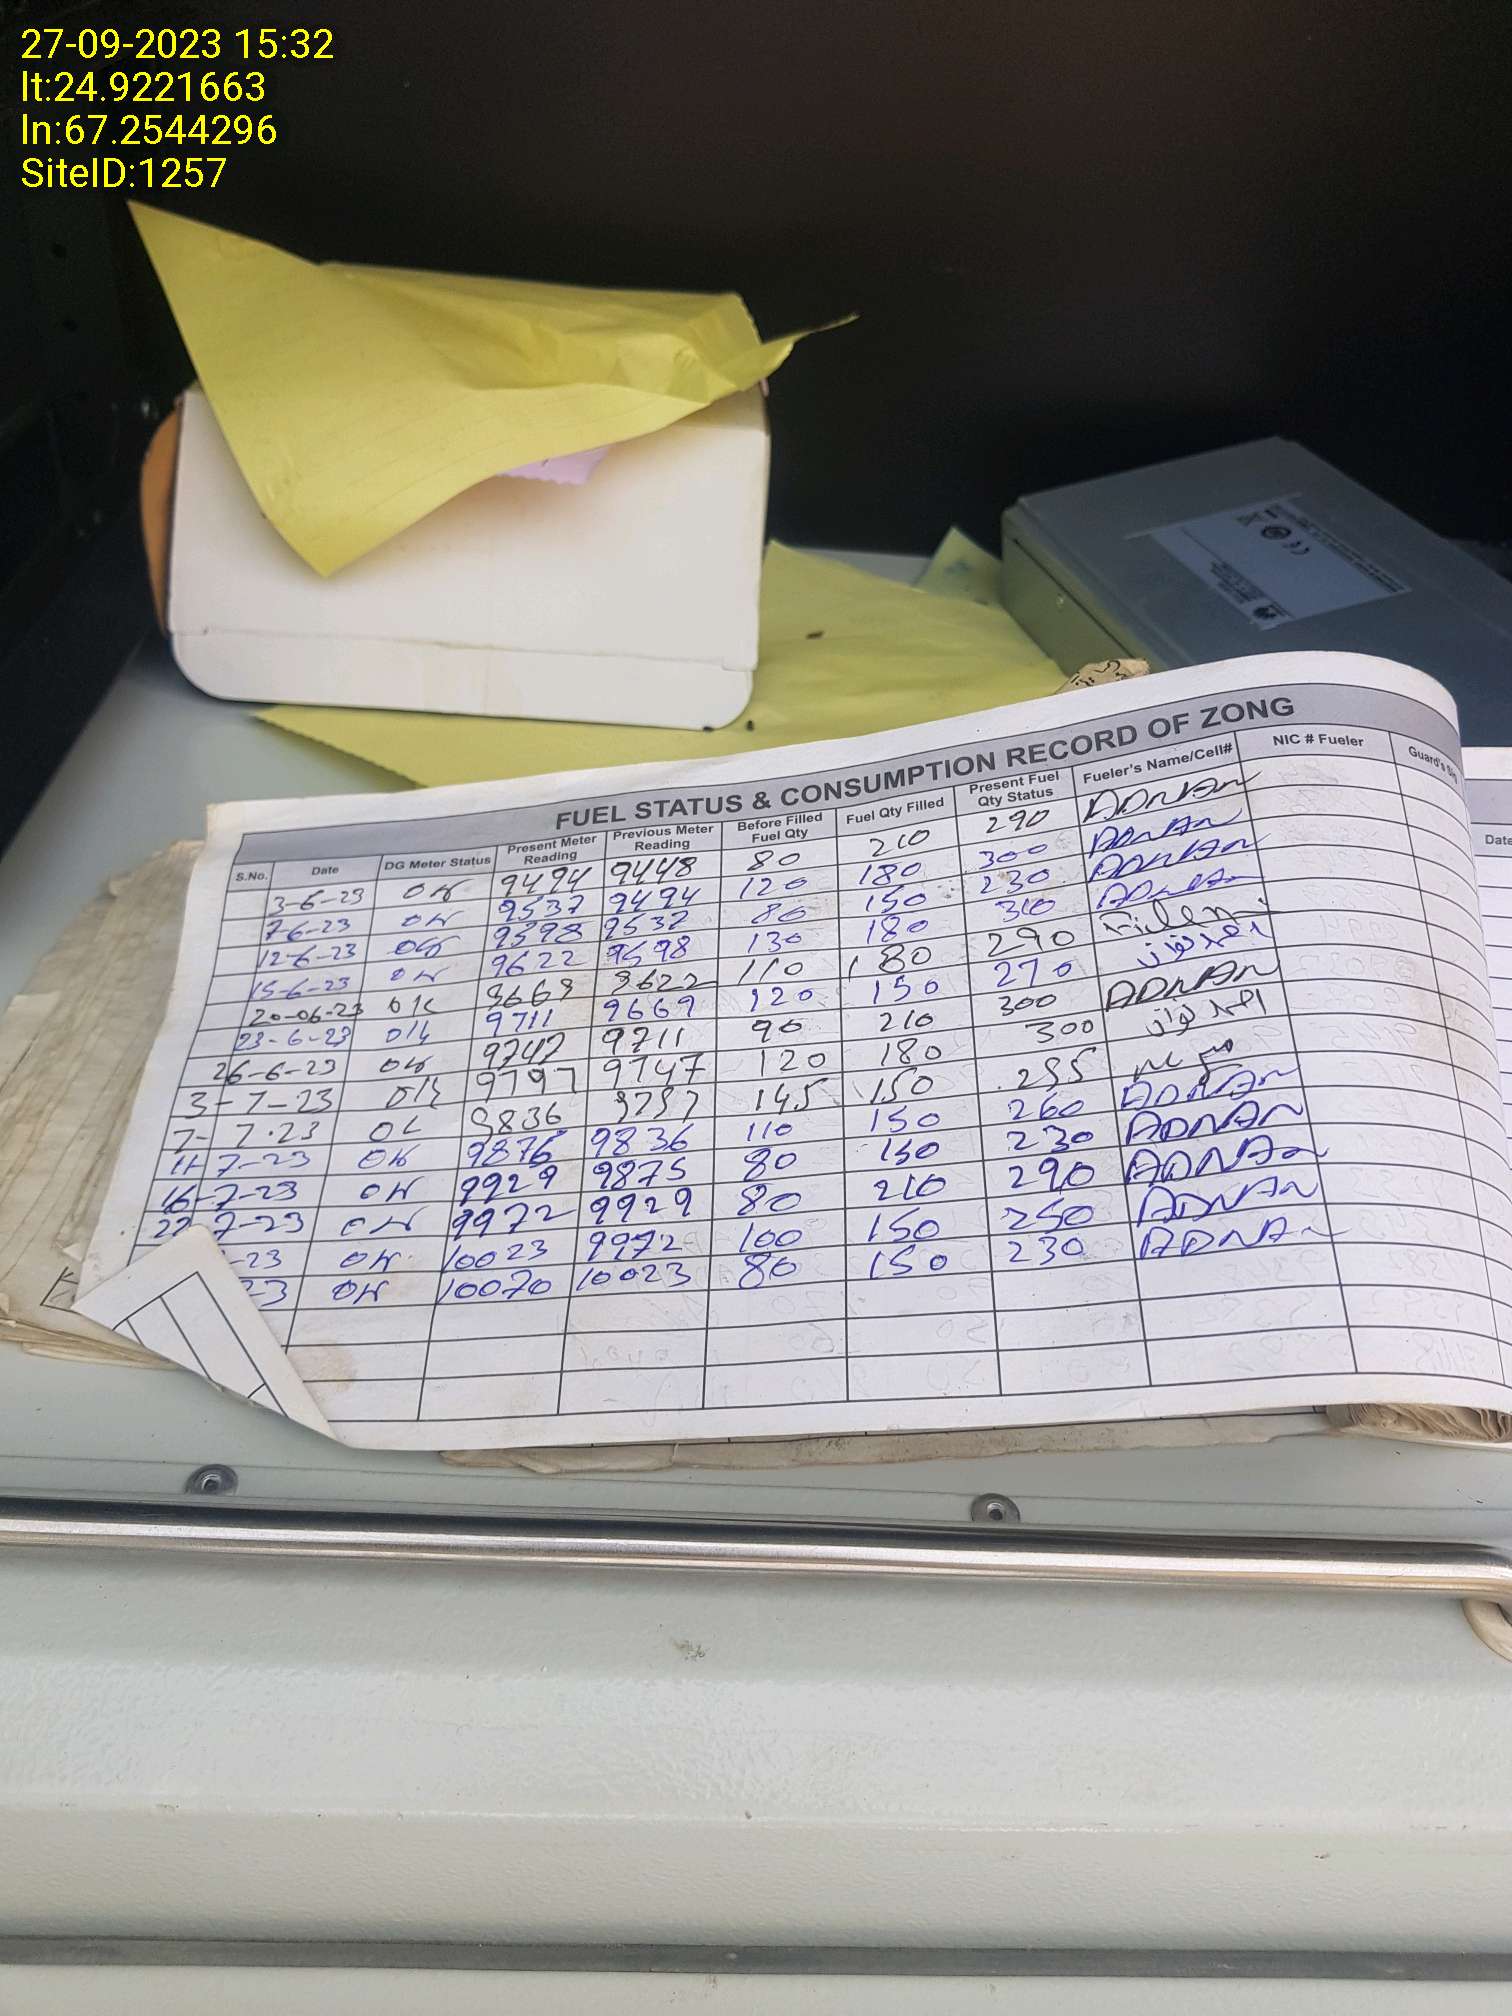 27-09-2023 15:32
lt:24.9221663
ln:67.2544296
SiteID:1257
FUEL STATUS & CONSUMPTION RECORD OF ZONG
S.No. Date DG Meter Status Present Meter Reading Previous Meter Reading Before Filled Fuel Qty Fuel Qty Filled Present Fuel Qty Status Fueler's Name/Cell# NIC # Fueler Guard's
3-6-23 OK 9494 9448 80 210 290 ADNAN
7-6-23 OK 9537 9494 120 180 300 ADNAN
12-6-23 OK 9598 9537 80 150 230 ADNAN
15-6-23 OK 9622 9598 130 180 310 ADNAN
20-06-23 OK 9669 9622 110 180 290
23-6-23 OK 9711 9669 120 150 270 احمد نواز
26-6-23 OK 9747 9711 90 210 300 ADNAN
3-7-23 OK 9797 9747 120 180 300 احمد نواز
7-7-23 OK 9836 9797 145 150 295
11-7-23 OK 9875 9836 110 150 260 ADNAN
16-7-23 OK 9929 9875 80 150 230 ADNAN
22-7-23 OK 9972 9929 80 210 290 ADNAN
-23 OK 10023 9972 100 150 250 ADNAN
-23 OK 10070 10023 80 150 230 ADNAN
Date